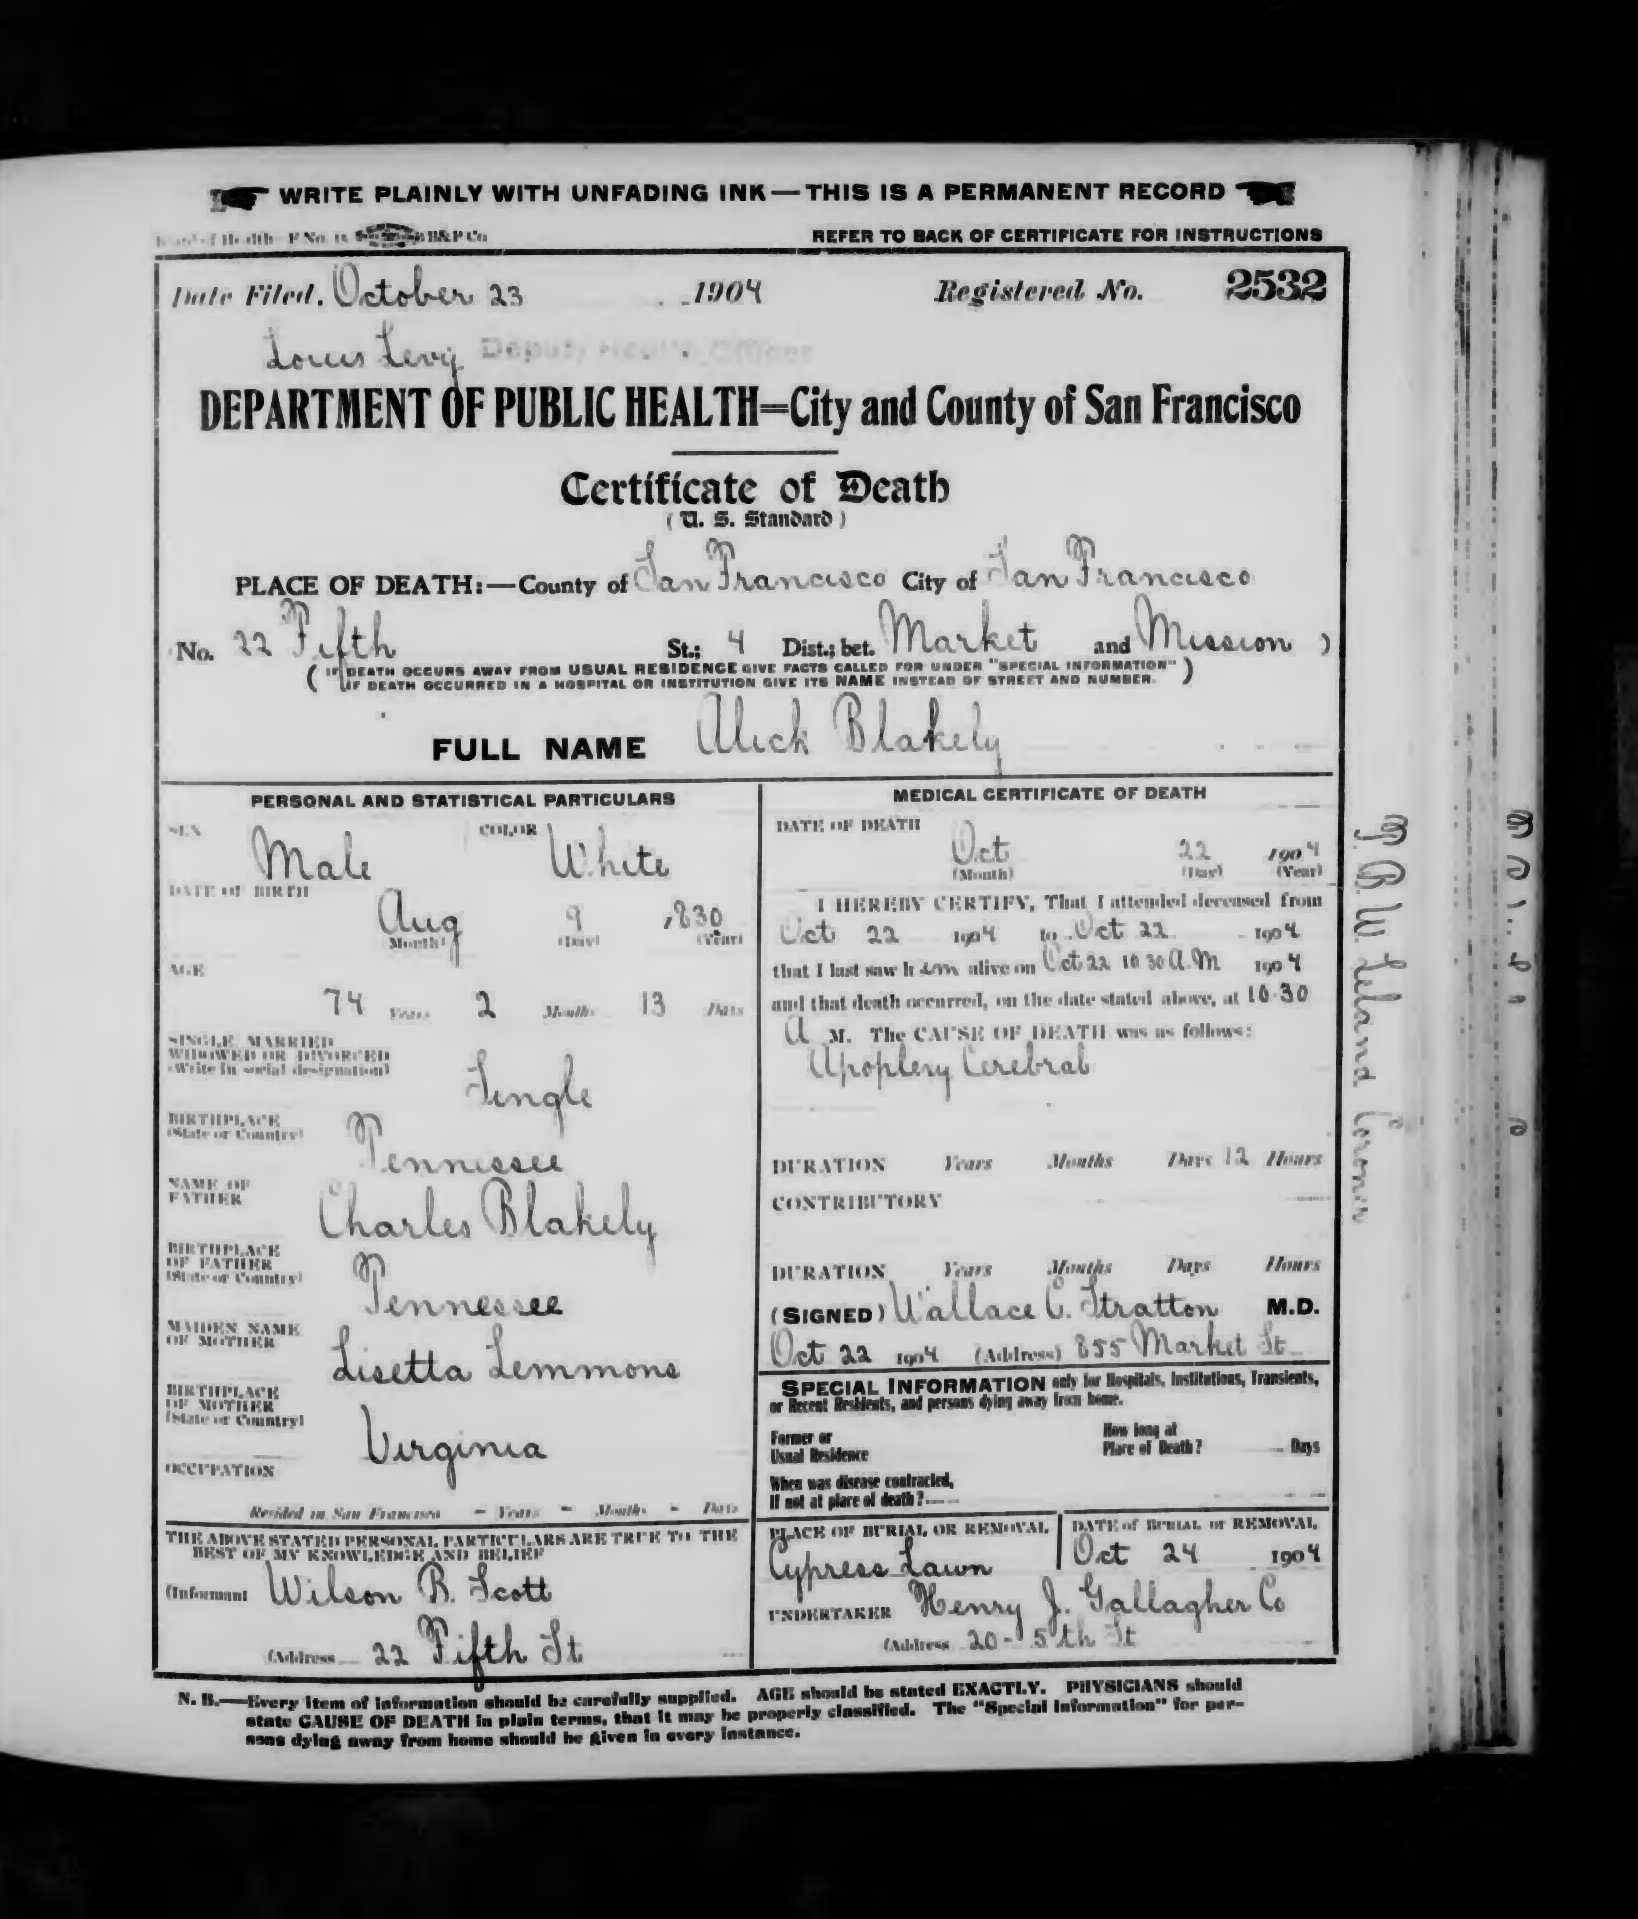 WRITE PLAINLY WITH UNFADING INK—THIS IS A PERMANENT RECORD
Board of Health—F No. 15 B&P Co
REFER TO BACK OF CERTIFICATE FOR INSTRUCTIONS
Date Filed, October 23 1904 Registered No. 2532
Louis Levy Deputy Health Officer
DEPARTMENT OF PUBLIC HEALTH=City and County of San Francisco
Certificate of Death
(U. S. Standard)
PLACE OF DEATH:—County of San Francisco City of San Francisco
No. 22 Fifth St.; 4 Dist.; bet. Market and Mission )
( IF DEATH OCCURS AWAY FROM USUAL RESIDENCE GIVE FACTS CALLED FOR UNDER "SPECIAL INFORMATION" )
IF DEATH OCCURRED IN A HOSPITAL OR INSTITUTION GIVE ITS NAME INSTEAD OF STREET AND NUMBER.
FULL NAME Alick Blakely
PERSONAL AND STATISTICAL PARTICULARS
SEX Male COLOR White
DATE OF BIRTH
Aug 9 1830
(Month) (Day) (Year)
AGE
74 Years 2 Months 13 Days
SINGLE, MARRIED
WIDOWED OR DIVORCED
(Write in social designation)
Single
BIRTHPLACE
(State or Country)
Tennessee
NAME OF
FATHER
Charles Blakely
BIRTHPLACE
OF FATHER
(State or Country)
Tennessee
MAIDEN NAME
OF MOTHER
Lisetta Lemmons
BIRTHPLACE
OF MOTHER
(State or Country)
Virginia
OCCUPATION
Resided in San Francisco - Years - Months - Days
THE ABOVE STATED PERSONAL PARTICULARS ARE TRUE TO THE
BEST OF MY KNOWLEDGE AND BELIEF
(Informant Wilson B. Scott
(Address 22 Fifth St
MEDICAL CERTIFICATE OF DEATH
DATE OF DEATH
Oct 22 1904
(Month) (Day) (Year)
I HEREBY CERTIFY, That I attended deceased from
Oct 22 1904 to Oct 22 1904
that I last saw h im alive on Oct 22 10 30 A.M 1904
and that death occurred, on the date stated above, at 10.30
A M. The CAUSE OF DEATH was as follows:
Apoplexy Cerebral
DURATION Years Months Days 12 Hours
CONTRIBUTORY
DURATION Years Months Days Hours
(SIGNED) Wallace C. Stratton M.D.
Oct 22 1904 (Address) 855 Market St
SPECIAL INFORMATION only for Hospitals, Institutions, Transients,
or Recent Residents, and persons dying away from home.
Former or
Usual Residence
How long at
Place of Death? Days
When was disease contracted,
If not at place of death?
PLACE OF BURIAL OR REMOVAL
Cypress Lawn
DATE of BURIAL or REMOVAL
Oct 24 1904
UNDERTAKER Henry J. Gallagher Co
(Address 20 - 5th St
N. B.—Every item of information should be carefully supplied. AGE should be stated EXACTLY. PHYSICIANS should
state CAUSE OF DEATH in plain terms, that it may be properly classified. The "Special Information" for per-
sons dying away from home should be given in every instance.
Leland Coroner